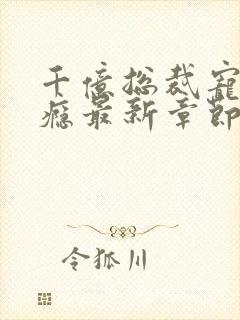 千億總裁寵
癮最新章節
令狐川